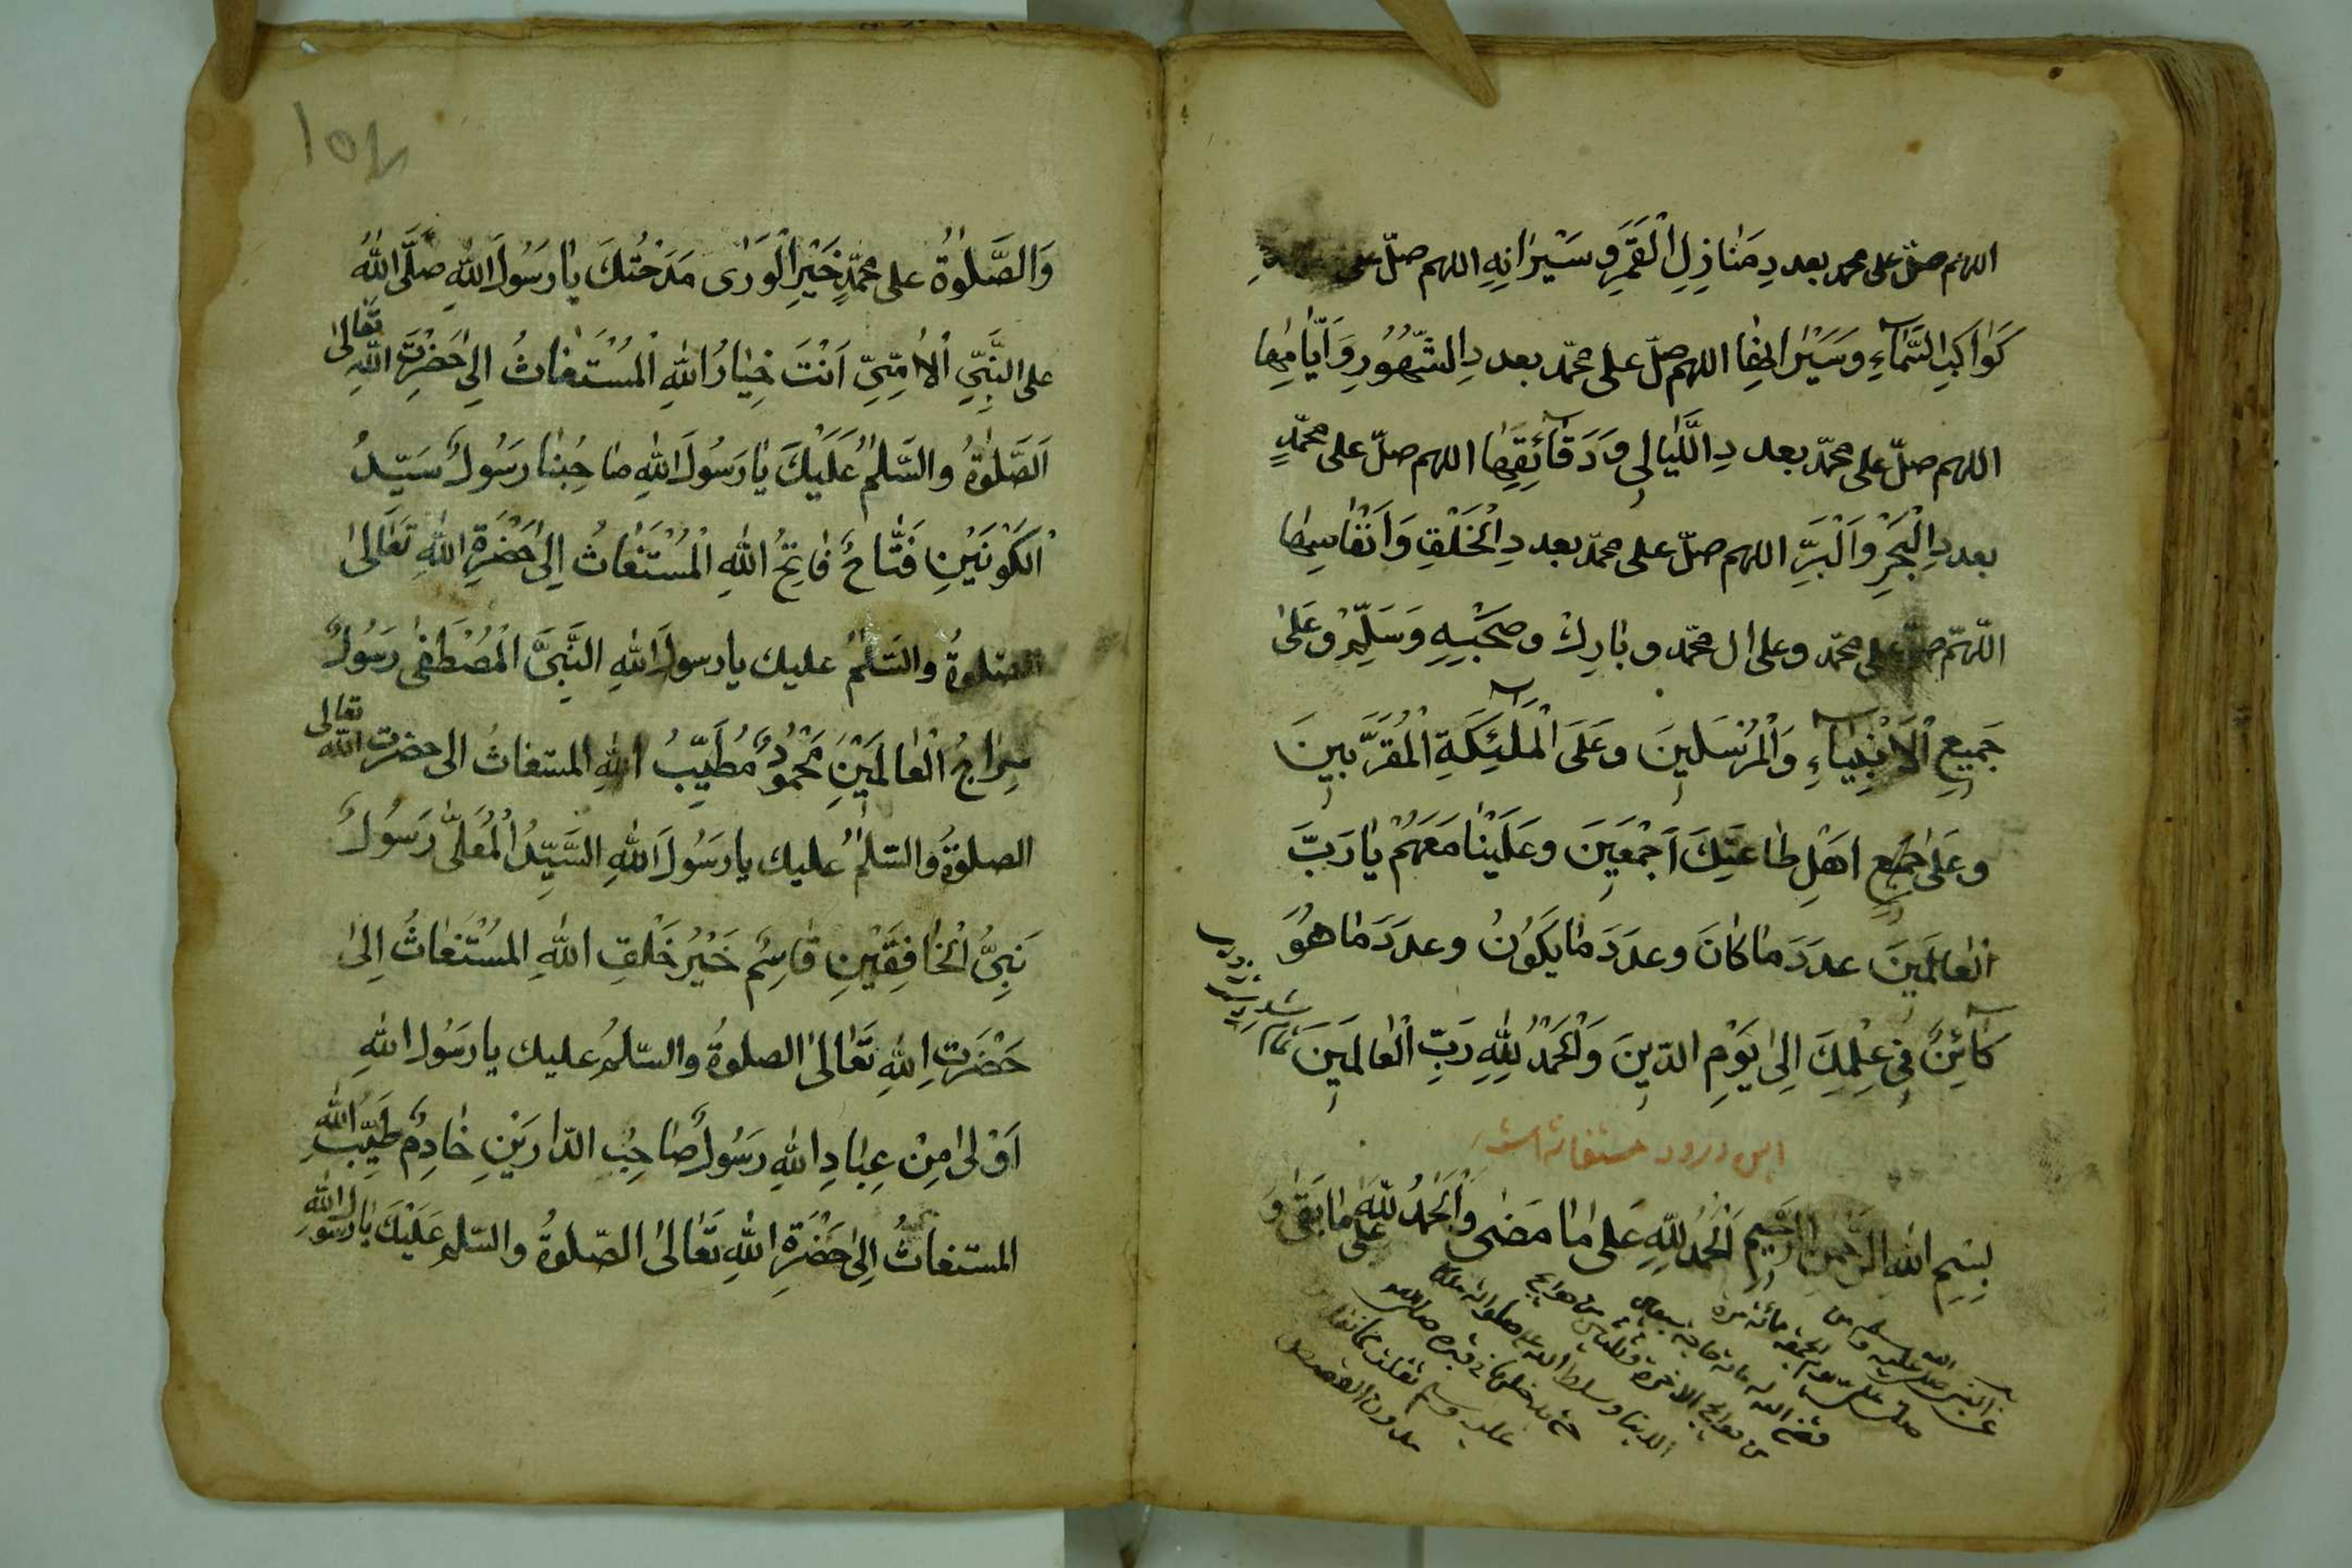 اللهم صلّ على محمد بعددِ مَنَازِلِ الْقَمَرِ وَسَيْرَانِهِ اللهم صلّ على
كَوَاكَبِ السَّمَآءِ وسَيَرَانِهَا اللهم صلّ على محمّد بعددِ الشُّهُوْرِ وَاَيَّامِهَا
اللهم صلّ على محمّد بعددِ اللَّيَالِى وَدَقَآئِقِهَا اللهم صلّ على محمّدٍ
بعددِ الْبَحْرِ وَالْبَرِّ اللهم صلّ على محمّد بعددِ الْخَلْقِ وَاَنْفَاسِهَا
اللّهمّ صلّ على محمّد وعلى ال محمّد وبَارِكْ وصَحْبِهِ وَسَلِّمْ وعَلَىٰ
جَمِيْعِ الْاَنْبِيَآءِ وَالْمُرْسَلِينَ وعَلَى الْمَلٰٓئِكَةِ الْمُقَرَّبِينَ
وعَلىٰ جَمِيع اَهْلِ طَاعَتِكَ اَجْمَعِينَ وعَلَيْنَا مَعَهُمْ يَا رَبَّ
الْعَالَمِينَ عددَ مَا كَانَ وعددَ مَا يَكُوْنُ وعددَ مَا هُوَ
كَآئِنٌ فِي عِلْمِكَ اِلىٰ يَوْمِ الدّينِ وَالْحَمْدُ لِلّٰهِ رَبِّ الْعَالَمِينَ تمام
شد
اين درود مستغاث است
بِسْمِ اللهِ الرَّحْمنِ الرَّحِيمِ الْحَمْدُ لِلّٰهِ عَلىٰ مَا مَضٰى وَالْحَمْدُ لِلّٰهِ عَلىٰ مَا بَقٰى وَ
عن النبى صلى الله عليه وسلم من
صلى علىّ يوم الجمعة مائة مرة
قضى الله له مائة حاجة سبعين
من حوايج الاخرة وثلثين من حوايج
الدنيا
وَالصَّلٰوةُ على محمّدٍ خَيْرِ الْوَرٰى مَدَحْتُكَ يَا رَسُولَ اللهِ صلَّى اللهُ
على النَّبِيِّ الْاُمِّيِّ اَنْتَ خِيَارُ اللهِ الْمُسْتَغَاثُ اِلىٰ حَضْرَتِ اللهِ تَعَالىٰ
اَلصَّلٰوةُ والسَّلٰمُ عَلَيْكَ يَا رَسُولَ اللهِ صَاحِبُنَا رَسُولٌ سَيّدُ
الْكَوْنَيْنِ فَتَّاحٌ فَاتِحُ اللهِ الْمُسْتَغَاثُ اِلىٰ حَضْرَةِ اللهِ تَعَالىٰ
الصّلٰوةُ والسّلٰمُ عليك يا رسولَ اللهِ النَّبِىَّ الْمُصْطَفٰى رَسُولٌ
سِرَاجُ الْعَالَمِينَ مَحْمُوْدٌ مُطَيِّبُ اللهِ المستغاث الى حضرت اللّٰه تعالى
الصلوةُ والسّلٰمُ عليك يا رَسُولَ اللهِ السَّيّدُ الْمُعَلّٰى رَسُولٌ
نَبِىُّ الْخَافِقَيْنِ قَاسِمٌ خَيْرُ خَلْقِ اللهِ المُسْتَغَاثُ اِلىٰ
حَضْرَتِ اللهِ تَعَالىٰ الصلوةُ والسّلٰمُ عليك يا رَسُولَ اللهِ
اَوْلىٰ مِنْ عِبَادِ اللهِ رَسُولٌ صَاحِبُ الدّارَيْنِ خَادِمٌ طَيِّبُ اللهِ
المستغاثُ اِلىٰ حَضْرَةِ اللهِ تَعَالىٰ الصّلوةُ والسّلٰمُ عَلَيْكَ يَا رَسُولَ اللهِ